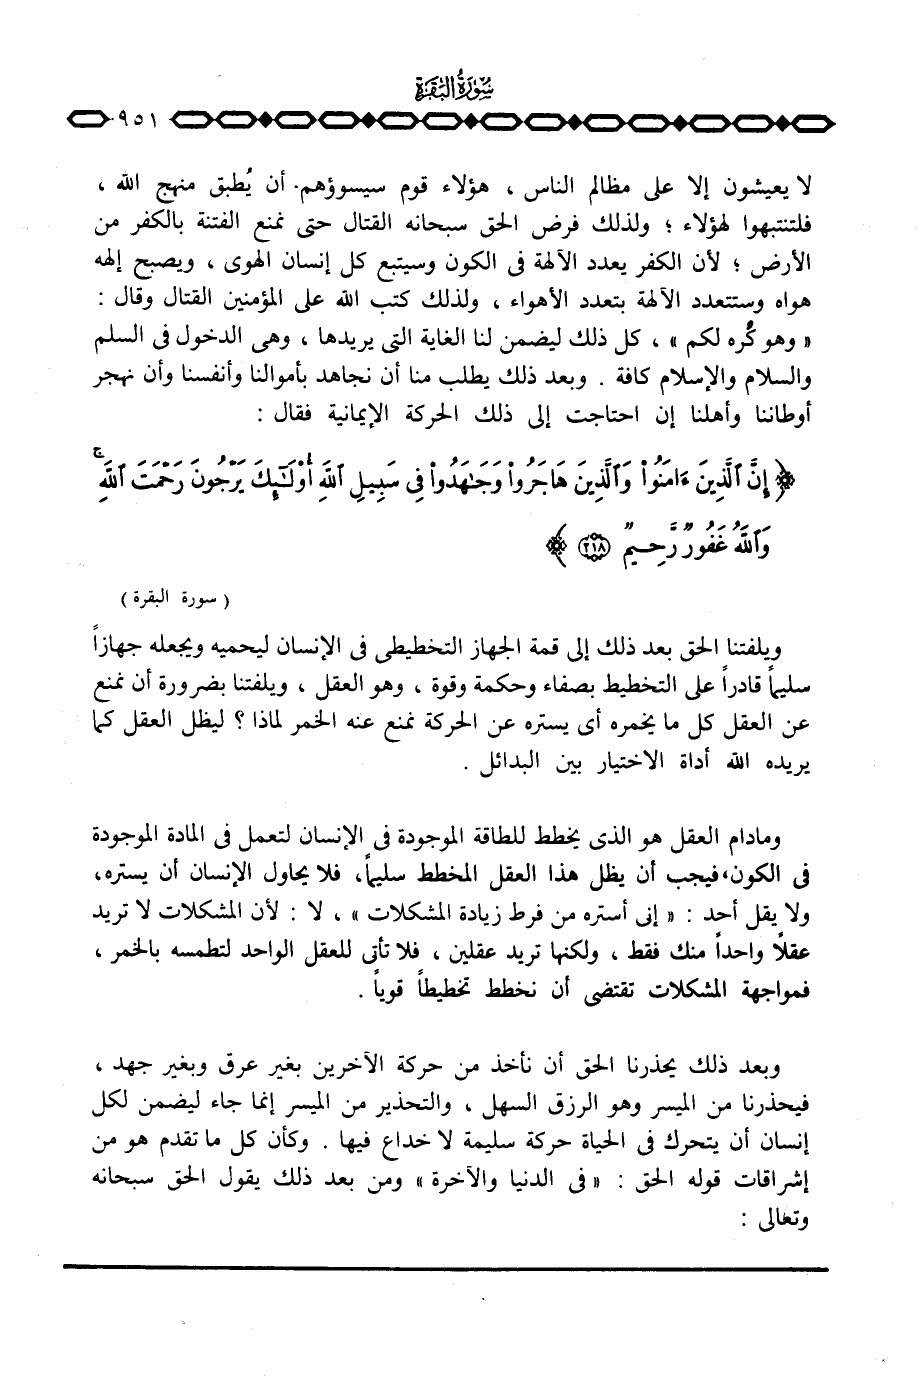 سُورَةُ البَقَرَة
٩٥١
لا يعيشون إلا على مظالم الناس ، هؤلاء قوم سيسوؤهم أن يُطبق منهج الله ،
فلتنتبهوا لهؤلاء ؛ ولذلك فرض الحق سبحانه القتال حتى نمنع الفتنة بالكفر من
الأرض ؛ لأن الكفر يعدد الآلهة فى الكون وسيتبع كل إنسان الهوى ، ويصبح إلهه
هواه وستتعدد الآلهة بتعدد الأهواء ، ولذلك كتب الله على المؤمنين القتال وقال :
« وهو كُره لكم » ، كل ذلك ليضمن لنا الغاية التى يريدها ، وهى الدخول فى السلم
والسلام والإسلام كافة . وبعد ذلك يطلب منا أن نجاهد بأموالنا وأنفسنا وأن نهجر
أوطاننا وأهلنا إن احتاجت إلى ذلك الحركة الإيمانية فقال :
﴿ إِنَّ ٱلَّذِينَ ءَامَنُوا۟ وَٱلَّذِينَ هَاجَرُوا۟ وَجَـٰهَدُوا۟ فِى سَبِيلِ ٱللَّهِ أُو۟لَـٰٓئِكَ يَرْجُونَ رَحْمَتَ ٱللَّهِ ۚ
وَٱللَّهُ غَفُورٌ رَّحِيمٌ ٢١٨ ﴾
( سورة البقرة )
ويلفتنا الحق بعد ذلك إلى قمة الجهاز التخطيطى فى الإنسان ليحميه ويجعله جهازاً
سليماً قادراً على التخطيط بصفاء وحكمة وقوة ، وهو العقل ، ويلفتنا بضرورة أن نمنع
عن العقل كل ما يخمره أى يستره عن الحركة نمنع عنه الخمر لماذا ؟ ليظل العقل كما
يريده الله أداة الاختيار بين البدائل .
ومادام العقل هو الذى يخطط للطاقة الموجودة فى الإنسان لتعمل فى المادة الموجودة
فى الكون، فيجب أن يظل هذا العقل المخطط سليماً، فلا يحاول الإنسان أن يستره،
ولا يقل أحد : « إنى أستره من فرط زيادة المشكلات » ، لا : لأن المشكلات لا تريد
عقلاً واحداً منك فقط ، ولكنها تريد عقلين ، فلا تأتى للعقل الواحد لتطمسه بالخمر ،
فمواجهة المشكلات تقتضى أن نخطط تخطيطاً قوياً .
وبعد ذلك يحذرنا الحق أن نأخذ من حركة الآخرين بغير عرق وبغير جهد ،
فيحذرنا من الميسر وهو الرزق السهل ، والتحذير من الميسر إنما جاء ليضمن لكل
إنسان أن يتحرك فى الحياة حركة سليمة لا خداع فيها . وكأن كل ما تقدم هو من
إشراقات قوله الحق : « فى الدنيا والآخرة » ومن بعد ذلك يقول الحق سبحانه
وتعالى :